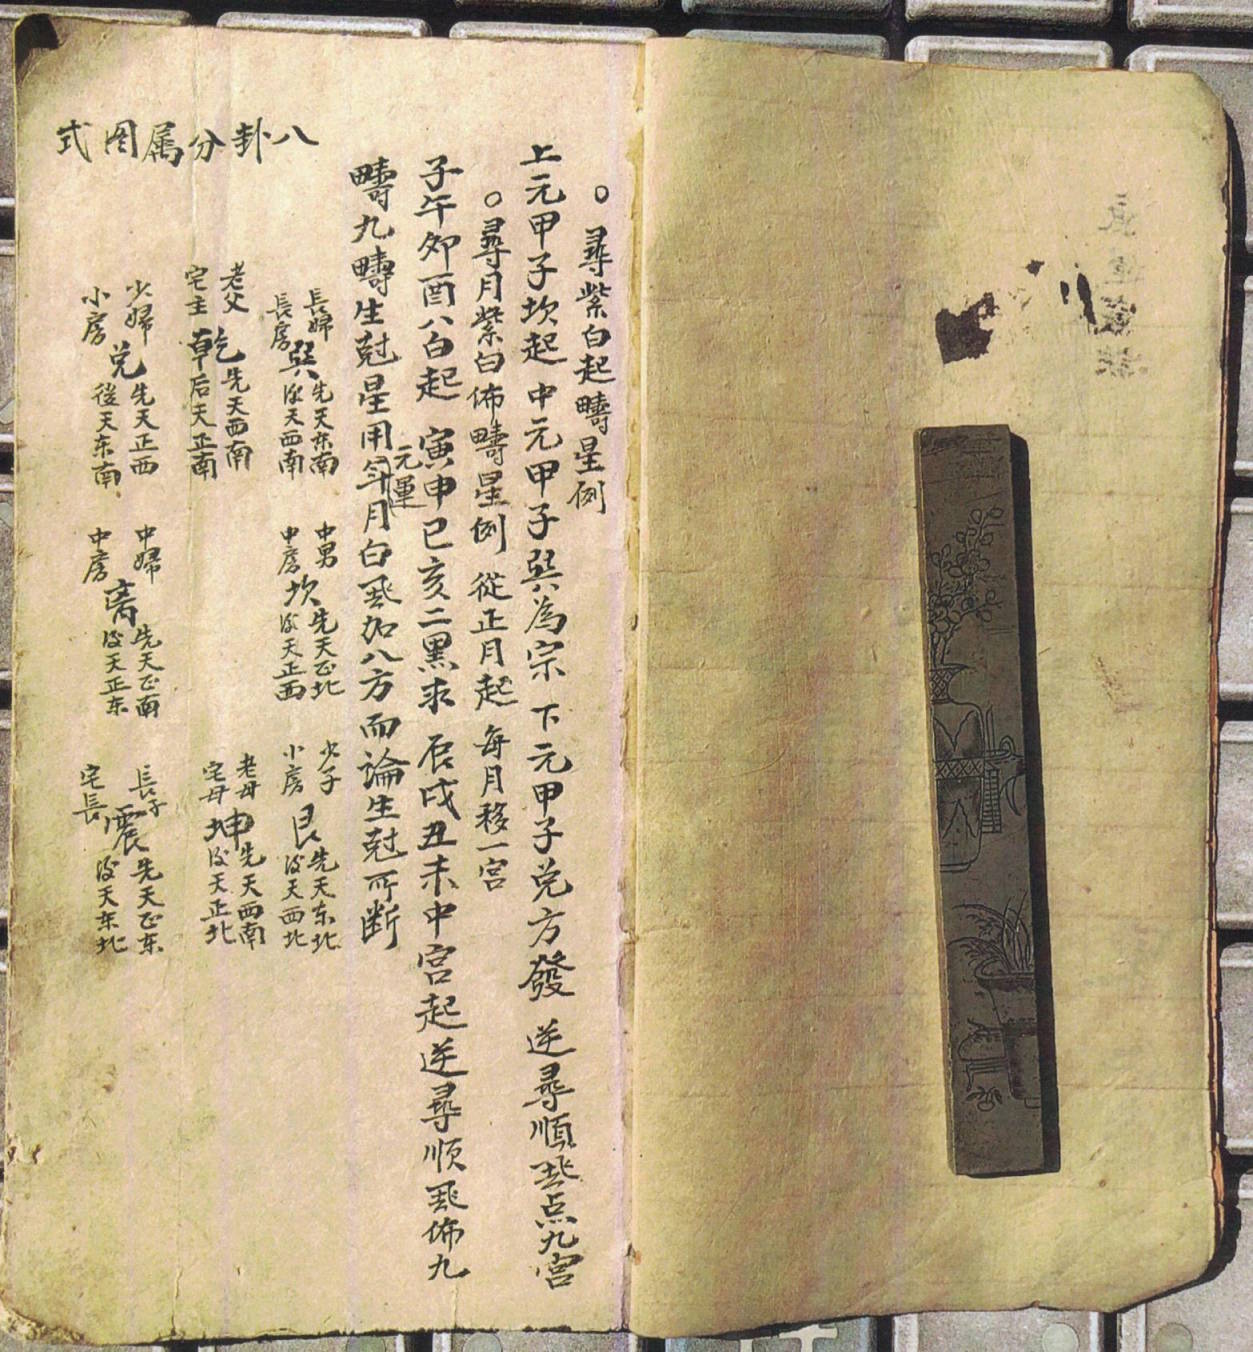 ○尋紫白起疇星例
上元甲子坎起 中元甲子巽為宗 下元甲子兌方發 逆尋順飛点九宮
○尋月紫白佈疇星例 從正月起每月移一宮
子午卯酉八白起 寅申巳亥二黑求 辰戌丑未中宮起逆尋順飛佈九
疇九疇生尅星用年月白飛加八方而論生尅所断
元運
八卦分属图式
長婦
長房
巽
先天东南
后天西南
中男
中房
坎
先天正北
后天正西
少子
小房
艮
先天东北
后天西北
老父
宅主
乾
先天西南
后天正南
老母
宅母
坤
先天西南
后天正北
少婦
小房
兑
先天正西
後天东南
中婦
中房
离
先天正南
后天正东
長子
宅長
震
先天正东
后天东北